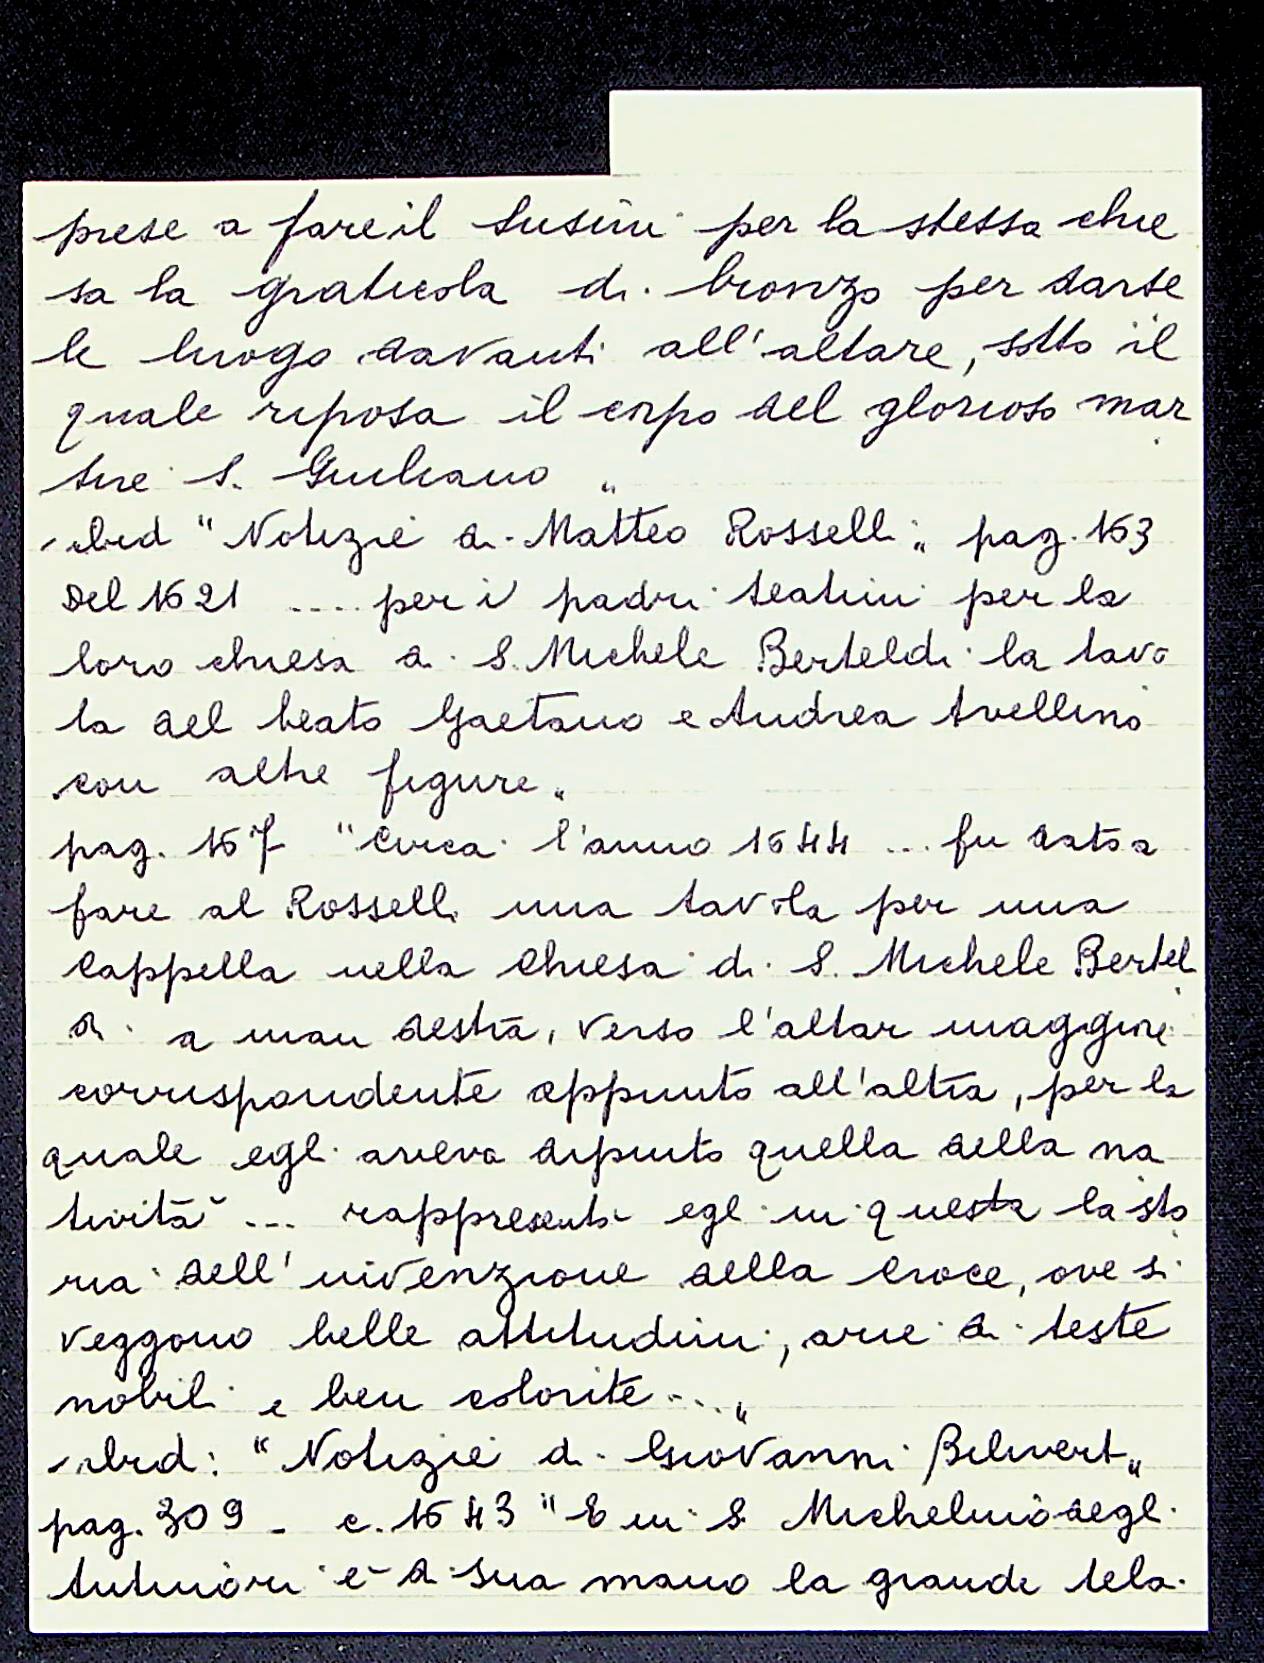 prese a fare il Susini per la stessa chie
sa la graticola di bronzo per darse
le luogo davanti all'altare, sotto il
quale riposa il corpo del glorioso mar
tire S. Giuliano "
- ibid "Notizie di Matteo Rosselli" pag. 163
Del 1621 .... per i padri teatini per la
loro chiesa di S. Michele Berteldi la tavo
la del beato Gaetano e Andrea Avellino
con altre figure"
pag. 167 "Circa l'anno 1644 ... fu dato a
fare al Rosselli una tavola per una
Cappella nella Chiesa di S. Michele Bertel
di a man destra, verso l'altar maggiore
corrispondente appunto all'altra, per la
quale egli aveva dipinto quella della na
tività ... rappresentò egli in questa la sto
ria dell'invenzione della Croce, ove si
veggono belle attitudini, arie di teste
nobili e ben colorite ..."
- ibid: "Notizie di Giovanni Bilivert"
pag. 309 - c. 1643 "E in S. Michelino degli
Antinori è di sua mano la grande tela